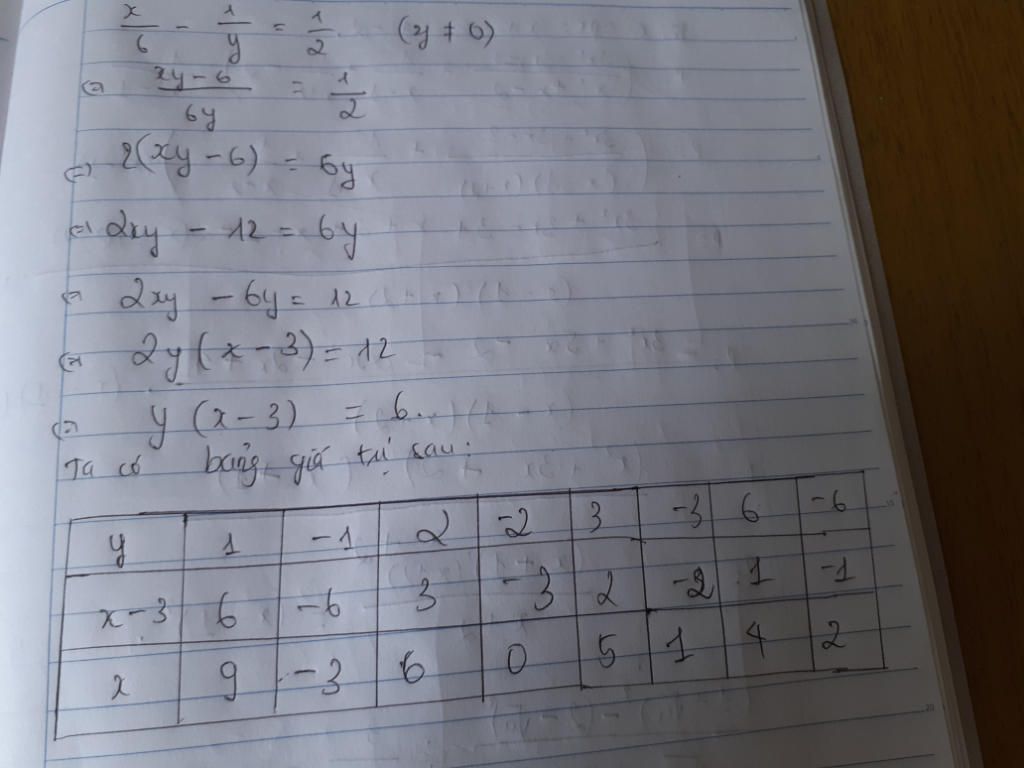 x/6 - 1/y = 1/2 (y ≠ 0)
⇔ (xy - 6)/6y = 1/2
⇔ 2(xy - 6) = 6y
⇔ 2xy - 12 = 6y
⇔ 2xy - 6y = 12
⇔ 2y(x - 3) = 12
⇔ y(x - 3) = 6.
Ta có bảng giá trị sau:
y 1 -1 2 -2 3 -3 6 -6
x-3 6 -6 3 -3 2 -2 1 -1
x 9 -3 6 0 5 1 4 2